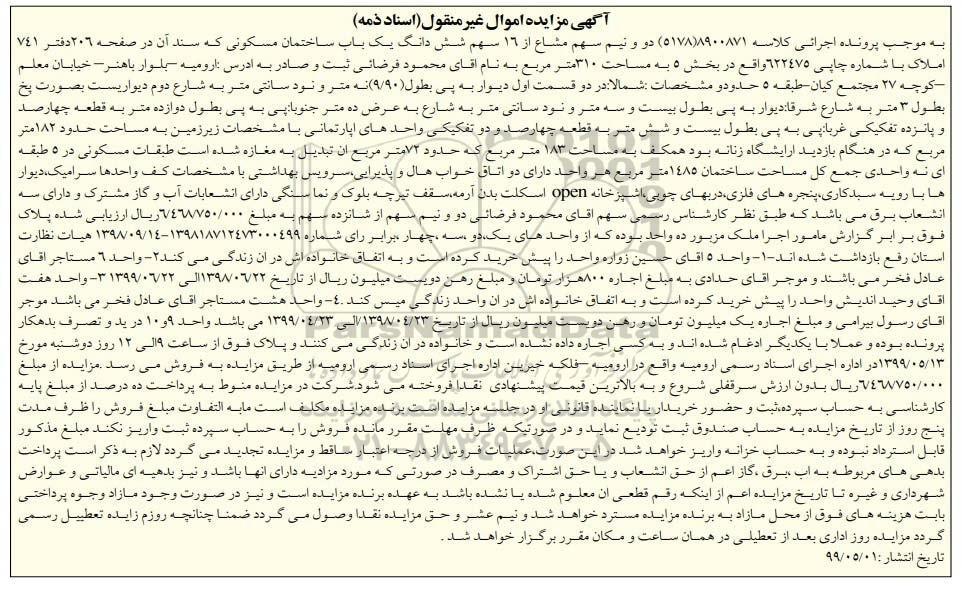 آگهی مزایده اموال غیرمنقول(اسناد ذمه)
به موجب پرونده اجرائی کلاسه ۸۹۰۰۸۷۱(۵۱۷۸) دو و نیم سهم مشاع از ۱۶ سهم شش دانگ یک باب ساختمان مسکونی که سند آن در صفحه ۲۰۶دفتر ۷۴۱
املاک با شماره چاپی ۶۲۲۴۷۵واقع در بخش ۵ به مساحت ۳۱۰متر مربع به نام اقای محمود فرضائی ثبت و صادر به ادرس :ارومیه –بلوار باهنر– خیابان معلم
–کوچه ۲۷ مجتمع کیان–طبقه ۵ حدودو مشخصات :شمالا:در دو قسمت اول دیوار به پی بطول(۹/۹۰)نه متر و نود سانتی متر به شارع دوم دیواریست بصورت پخ
بطول ۳ متر به شارع شرقا:دیوار به پی بطول بیست و سه متر و نود سانتی متر به شارع به عرض ده متر جنوبا:پی به پی بطول دوازده متر به قطعه چهارصد
و پانزده تفکیکی غربا:پی به پی بطول بیست و شش متر به قطعه چهارصدو دو تفکیکی واحد های اپارتمانی با مشخصات زیرزمین به مساحت حدود ۱۸۲متر
مربع که در هنگام بازدید ارایشگاه زنانه بود همکف به مساحت ۱۸۳ متر مربع که حدود ۷۲متر مربع ان تبدیل به مغازه شده است طبقات مسکونی در ۵ طبقه
ای نه واحدی جمع کل مساحت ساختمان ۱۴۸۵متر مربع هر واحد دارای دو اتاق خواب هال و پذیرایی،سرویس بهداشتی با مشخصات کف واحدها سرامیک،دیوار
ها با رویه سبدکاری،پنجره های فلزی،دربهای چوبی،اشپزخانه open اسکلت بدن آرمه،سقف تیرچه بلوک و نما سنگی دارای انشعابات آب و گاز مشترک و دارای سه
انشعاب برق می باشد که طبق نظر کارشناس رسمی سهم اقای محمود فرضائی دو و نیم سهم از شانزده سهم به مبلغ ۶/۴۶۸/۷۵۰/۰۰۰ریال ارزیابی شده پلاک
فوق بر ابر گزارش مامور اجرا ملک مزبور ده واحد بوده که از واحد های یک،دو ،سه ،چهار ،برابر رای شماره ۱۳۹۸۱۸۷۱۲۴۷۳۰۰۰۴۹۹-۱۳۹۸/۰۹/۱۴ هیات نظارت
استان رفع بازداشت شده اند–۱- واحد ۵ اقای حسین زواره واحد را پیش خرید کرده است و به اتفاق خانواده اش در ان زندگی می کند۲- واحد ۶ مستاجر اقای
عادل فخر می باشند و موجر اقای حدادی به مبلغ اجاره ۸۰۰هزار تومان و مبلغ رهن دویست میلیون ریال از تاریخ ۱۳۹۸/۰۶/۲۲الی ۱۳۹۹/۰۶/۲۲ ۳- واحد هفت
اقای وحید اندیش واحد را پیش خرید کرده است و به اتفاق خانواده اش در ان واحد زندگی میس کند .۴- واحد هشت مستاجر اقای عادل فخر می باشد موجر
اقای رسول بیرامی و مبلغ اجاره یک میلیون تومان و رهن دویست میلیون ریال از تاریخ ۱۳۹۸/۰۴/۲۳الی ۱۳۹۹/۰۴/۲۳ می باشد واحد ۹و۱۰ در ید و تصرف بدهکار
پرونده بوده و عملا با یکدیگر ادغام شده اند و به کسی اجاره داده نشده است و خانواده در ان زندگی می کنند و پلاک فوق از ساعت ۹الی ۱۲ روز دوشنبه مورخ
۱۳۹۹/۰۵/۱۳در اداره اجرای اسناد رسمی ارومیه واقع در ارومیه –فلکه خیرین اداره اجرای اسناد رسمی ارومیه از طریق مزایده به فروش می رسد .مزایده از مبلغ
۶/۴۶۸/۷۵۰/۰۰۰ریال بدون ارزش سرقفلی شروع و به بالاترین قیمت پیشنهادی  نقدا فروخته می شود.شرکت در مزایده منوط به پرداخت ده درصد از مبلغ پایه
کارشناسی به حساب سپرده،ثبت و حضور خریدار یا نماینده قانونی او در جلسه مزایده است.برنده مزایده مکلف است مابه التفاوت مبلغ فروش را ظرف مدت
پنج روز از تاریخ مزایده به حساب صندوق ثبت تودیع نماید و در صورتیکه  ظرف مهلت مقرر مانده فروش را به حساب سپرده ثبت واریز نکند مبلغ مذکور
قابل استرداد نبوده و به حساب خزانه واریز خواهد شد در این صورت،عملیات فروش از درجه اعتبار ساقط و مزایده تجدید می گردد لازم به ذکر است پرداخت
بدهی های مربوطه به اب ،برق ،گاز اعم از حق انشعاب و یا حق اشتراک و مصرف در صورتی که مورد مزادیه دارای انها باشد و نیز بدهیه ای مالیاتی و عوارض
شهرداری و غیره تا تاریخ مزایده اعم از اینکه رقم قطعی ان معلوم شده یا نشده باشد به عهده برنده مزایده است و نیز در صورت وجود مازاد وجوه پرداختی
بابت هزینه های فوق از محل مازاد به برنده مزایده مسترد خواهد شد و نیم عشر و حق مزایده نقدا وصول می گردد ضمنا چنانچه روزم زایده تعطییل رسمی
گردد مزایده روز اداری بعد از تعطیلی در همان ساعت و مکان مقرر برگزار خواهد شد .
تاریخ انتشار :۹۹/۰۵/۰۱
ParsNamadData
پایگاه اطلاع رسانی مناقصه و مزایده
۰۲۱-۸۸۳۴۹۶۷۰-۵